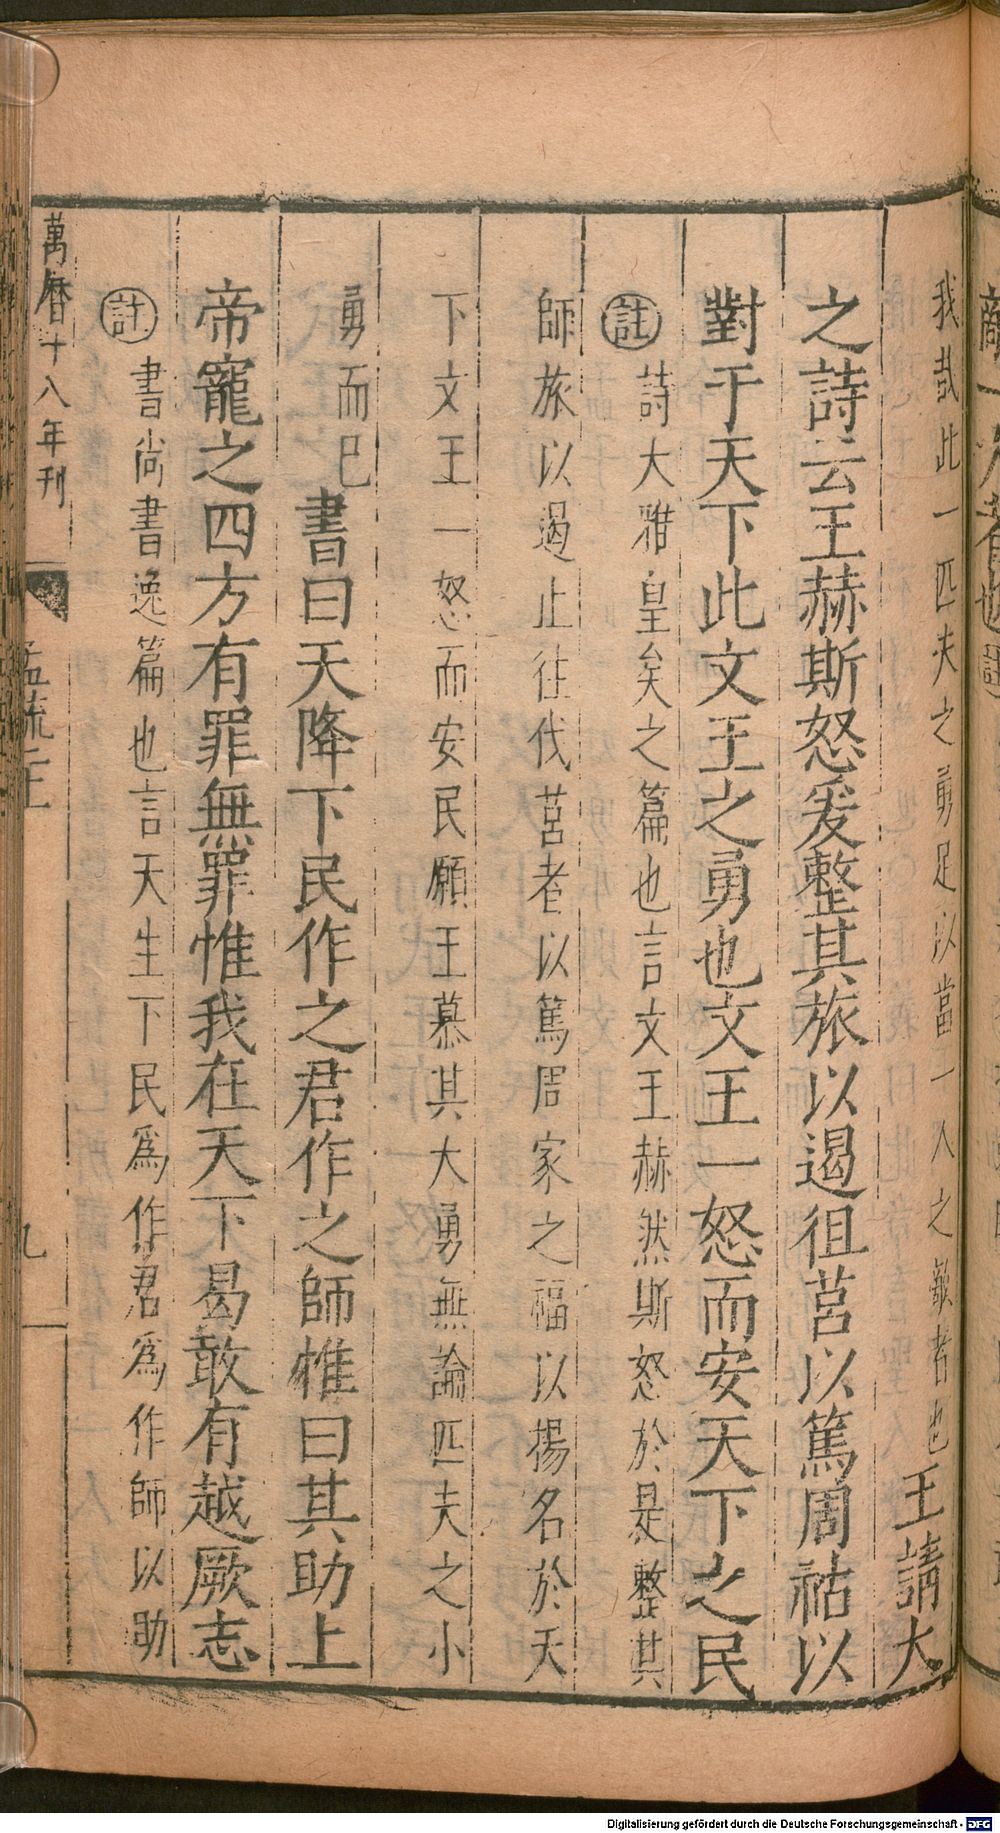 我哉此一匹夫之勇足以當一人之敵者也王請大
之詩云王赫斯怒爰整其旅以遏徂莒以篤周祜以
對于天下此文王之勇也文王一怒而安天下之民
註詩大雅皇矣之篇也言文王赫然斯怒於是整其
師旅以遏止往伐莒者以篤周家之福以揚名於天
下文王一怒而安民願王慕其大勇無論匹夫之小
勇而已書曰天降下民作之君作之師惟曰其助上
帝寵之四方有罪無罪惟我在天下曷敢有越厥志
註書尚書逸篇也言天生下民為作君為作師以助
萬曆十八年刊
孟疏二上
九
Digitalisierung gefördert durch die Deutsche Forschungsgemeinschaft - DFG